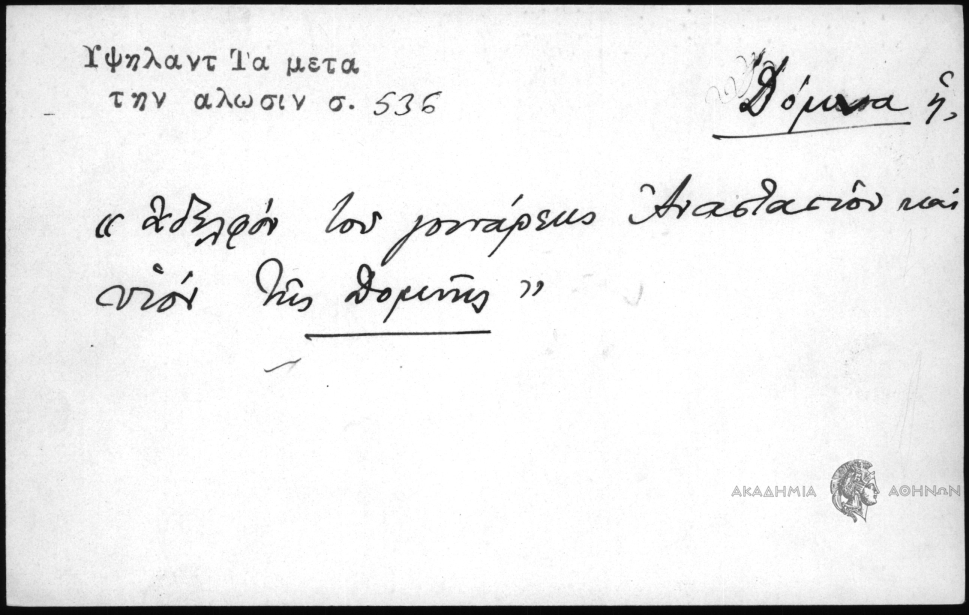 Υψηλαντ Τα μετα
την αλωσιν σ. 536
Δόμνα ἡ,
« ἀδελφόν του γουνάρεως Ἀναστασίου καὶ
υἱόν τῆς Δομνης »
ΑΚΑΔΗΜΙΑ ΑΘΗΝΩΝ